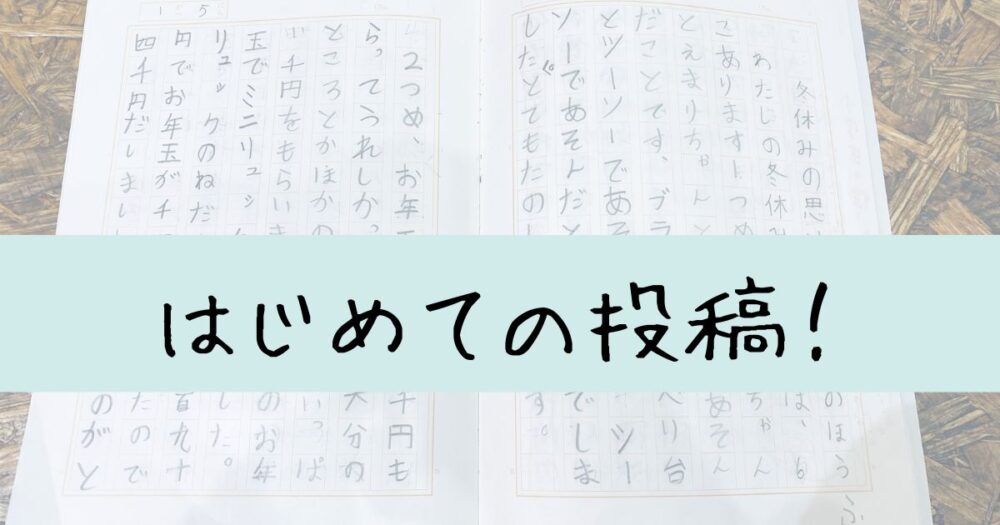 はじめての投稿!
冬休みの思
のほう
ふ
わたしの冬休み
は、
こありますー つめ
ちゃん
とえまりちゃんと
あそん
だことです、ブラ
リ台
とツーソーであそ
ツー
ソーであそんだと
でしま
したとてもたのし
す。
2つめ、お年
千円も
らってうれしかっ
大分の
ところとかほかの
いっぱ
千円をもらいま
のお年
玉でミニリュッ
した。
リュックのねだ
百九十
円でお年玉が千
たので
四千円だしまし
のがと
15